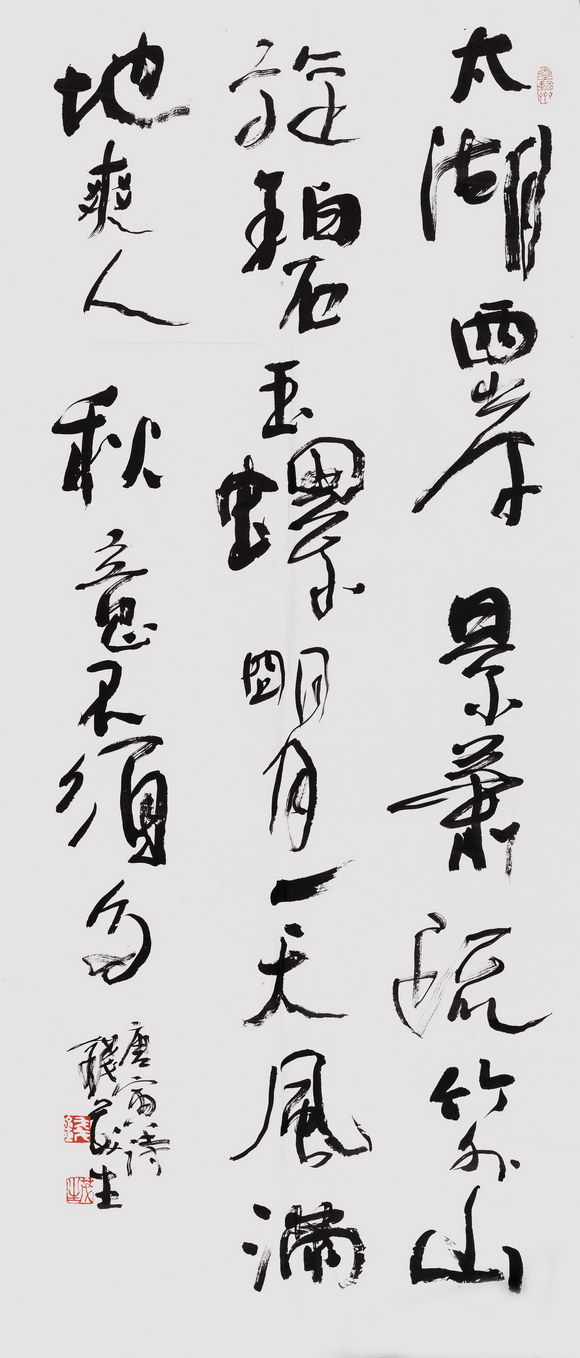 太湖西岸景蕭疏竹外山
旋碧玉螺明月一天風滿
地爽人秋意不須多
唐寅詩
錢茂生